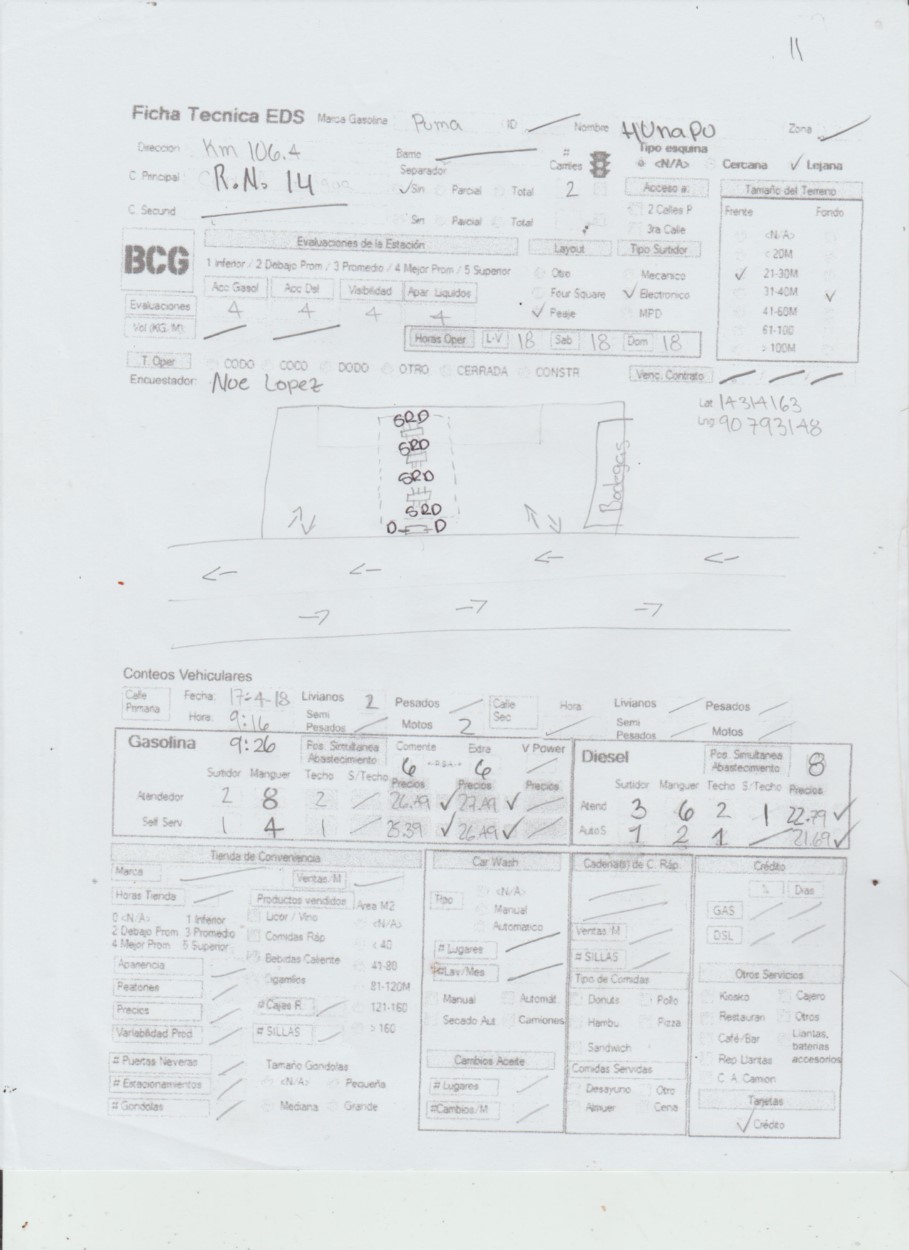 11
Ficha Tecnica EDS Marca Gasolina Puma ID Nombre HUNAPU Zona
Direccion Km 106.4 Barrio # Carriles Tipo esquina
<N/A> Cercana ✓ Lejana
C Principal R.N. 14 Separador ✓ Sin Parcial Total 2 Acceso a: Tamaño del Terreno
C. Secund Sin Parcial Total 2 Calles P Frente Fondo
3ra Calle <N/A>
BCG Evaluaciones de la Estación Layout Tipo Surtidor < 20M
1 Inferior / 2 Debajo Prom / 3 Promedio / 4 Mejor Prom / 5 Superior Otro Mecanico ✓ 21-30M
Acc Gasol Acc Dsl Visibilidad Apar Liquidos Four Square ✓ Electronico 31-40M ✓
Evaluaciones 4 4 4 4 ✓ Peaje MPD 41-60M
Vol (KG. M) Horas Oper L-V 18 Sab 18 Dom 18 61-100
> 100M
T. Oper CODO COCO DODO OTRO CERRADA CONSTR Venc. Contrato
Encuestador: Noe Lopez
Lat 14314163
Lng 90793148
SRD
SRD
SRD
SRD
D D
Bodegas
Conteos Vehiculares
Calle Primaria Fecha: 17-4-18 Livianos 2 Pesados Calle Sec Hora: Livianos Pesados
Hora: 9:16 Semi Pesados Motos 2 Semi Pesados Motos
Gasolina 9:26 Pos. Simultanea Abastecimiento Corriente 6 Extra 6 V Power Diesel Pos. Simultanea Abastecimiento 8
Surtidor Manguer Techo S/Techo Precios Precios Precios Surtidor Manguer Techo S/Techo Precios
Atendedor 2 8 2 26.49 ✓ 27.49 ✓ Atend 3 6 2 1 22.79 ✓
Self Serv 1 4 1 25.39 26.49 ✓ Auto S 1 2 1 21.69 ✓
Tienda de Conveniencia Car Wash Cadena(s) de C. Ráp. Crédito
Marca Ventas/M Tipo <N/A> % Dias
Horas Tienda Productos vendidos Area M2 Manual GAS
0 <N/A> 1 Inferior Licor / Vino <N/A> Automatico Ventas/M DSL
2 Debajo Prom 3 Promedio Comidas Ráp < 40 # Lugares # SILLAS
4 Mejor Prom 5 Superior Bebidas Caliente 41-80 #Lav/Mes Tipo de Comidas Otros Servicios
Apariencia Cigarrillos 81-120M Manual Automát. Donuts Pollo Kiosko Cajero
Peatones # Cajas R. 121-160 Secado Aut Camiones Hambu Pizza Restauran Otros
Precios # SILLAS > 160 Sandwich Café/Bar Llantas, baterias accesorios
Variabilidad Prod Cambios Aceite Comidas Servidas Rep Llantas
# Puertas Neveras Tamaño Gondolas # Lugares Desayuno Otro C. A. Camion
# Estacionamientos <N/A> Pequeña #Cambios/M Almuer Cena Tarjetas
# Gondolas Mediana Grande ✓ Crédito